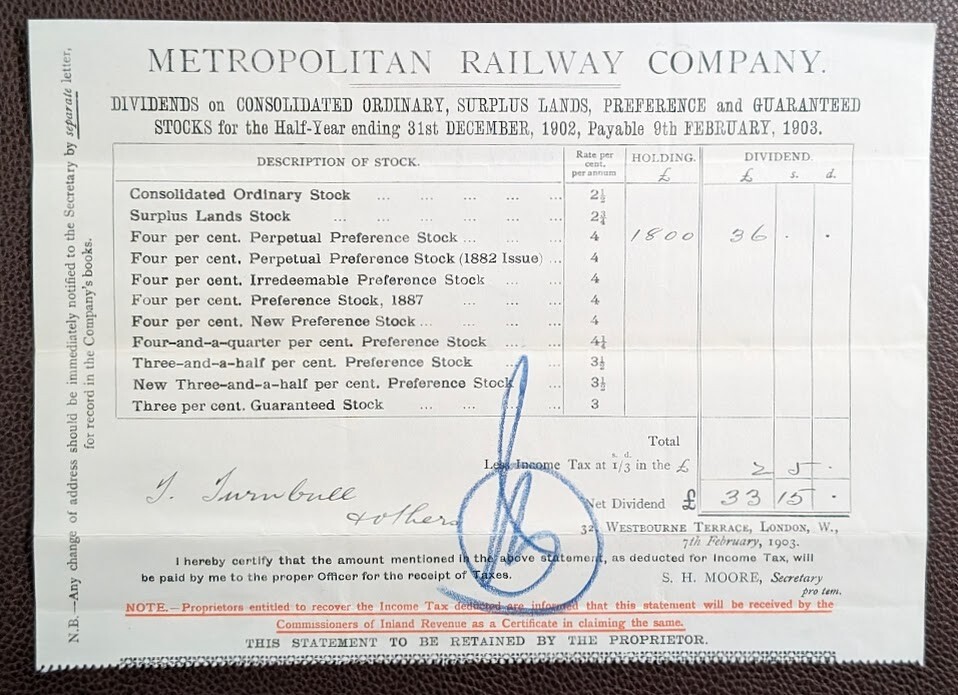 METROPOLITAN RAILWAY COMPANY.
DIVIDENDS on CONSOLIDATED ORDINARY, SURPLUS LANDS, PREFERENCE and GUARANTEED
STOCKS for the Half-Year ending 31st DECEMBER, 1902, Payable 9th FEBRUARY, 1903.
DESCRIPTION OF STOCK. Rate per cent. per annum HOLDING. £ DIVIDEND. £ s. d.
Consolidated Ordinary Stock ... ... ... ... ... 2½
Surplus Lands Stock ... ... ... ... ... ... 2¾
Four per cent. Perpetual Preference Stock ... ... ... 4 1800 36 . .
Four per cent. Perpetual Preference Stock (1882 Issue) ... 4
Four per cent. Irredeemable Preference Stock ... ... 4
Four per cent. Preference Stock, 1887 ... ... ... 4
Four per cent. New Preference Stock ... ... ... ... 4
Four-and-a-quarter per cent. Preference Stock ... ... 4¼
Three-and-a-half per cent. Preference Stock ... ... 3½
New Three-and-a-half per cent. Preference Stock ... 3½
Three per cent. Guaranteed Stock ... ... ... ... 3
Total
Less Income Tax at 1/3 in the £ 2 5 .
s. d.
Net Dividend £ 33 15 .
T. Turnbull
& others
32, WESTBOURNE TERRACE, LONDON, W.,
7th February, 1903.
I hereby certify that the amount mentioned in the above statement, as deducted for Income Tax, will
be paid by me to the proper Officer for the receipt of Taxes.
S. H. MOORE, Secretary
pro tem.
NOTE.—Proprietors entitled to recover the Income Tax deducted are informed that this statement will be received by the
Commissioners of Inland Revenue as a Certificate in claiming the same.
THIS STATEMENT TO BE RETAINED BY THE PROPRIETOR.
N.B.—Any change of address should be immediately notified to the Secretary by separate letter,
for record in the Company's books.